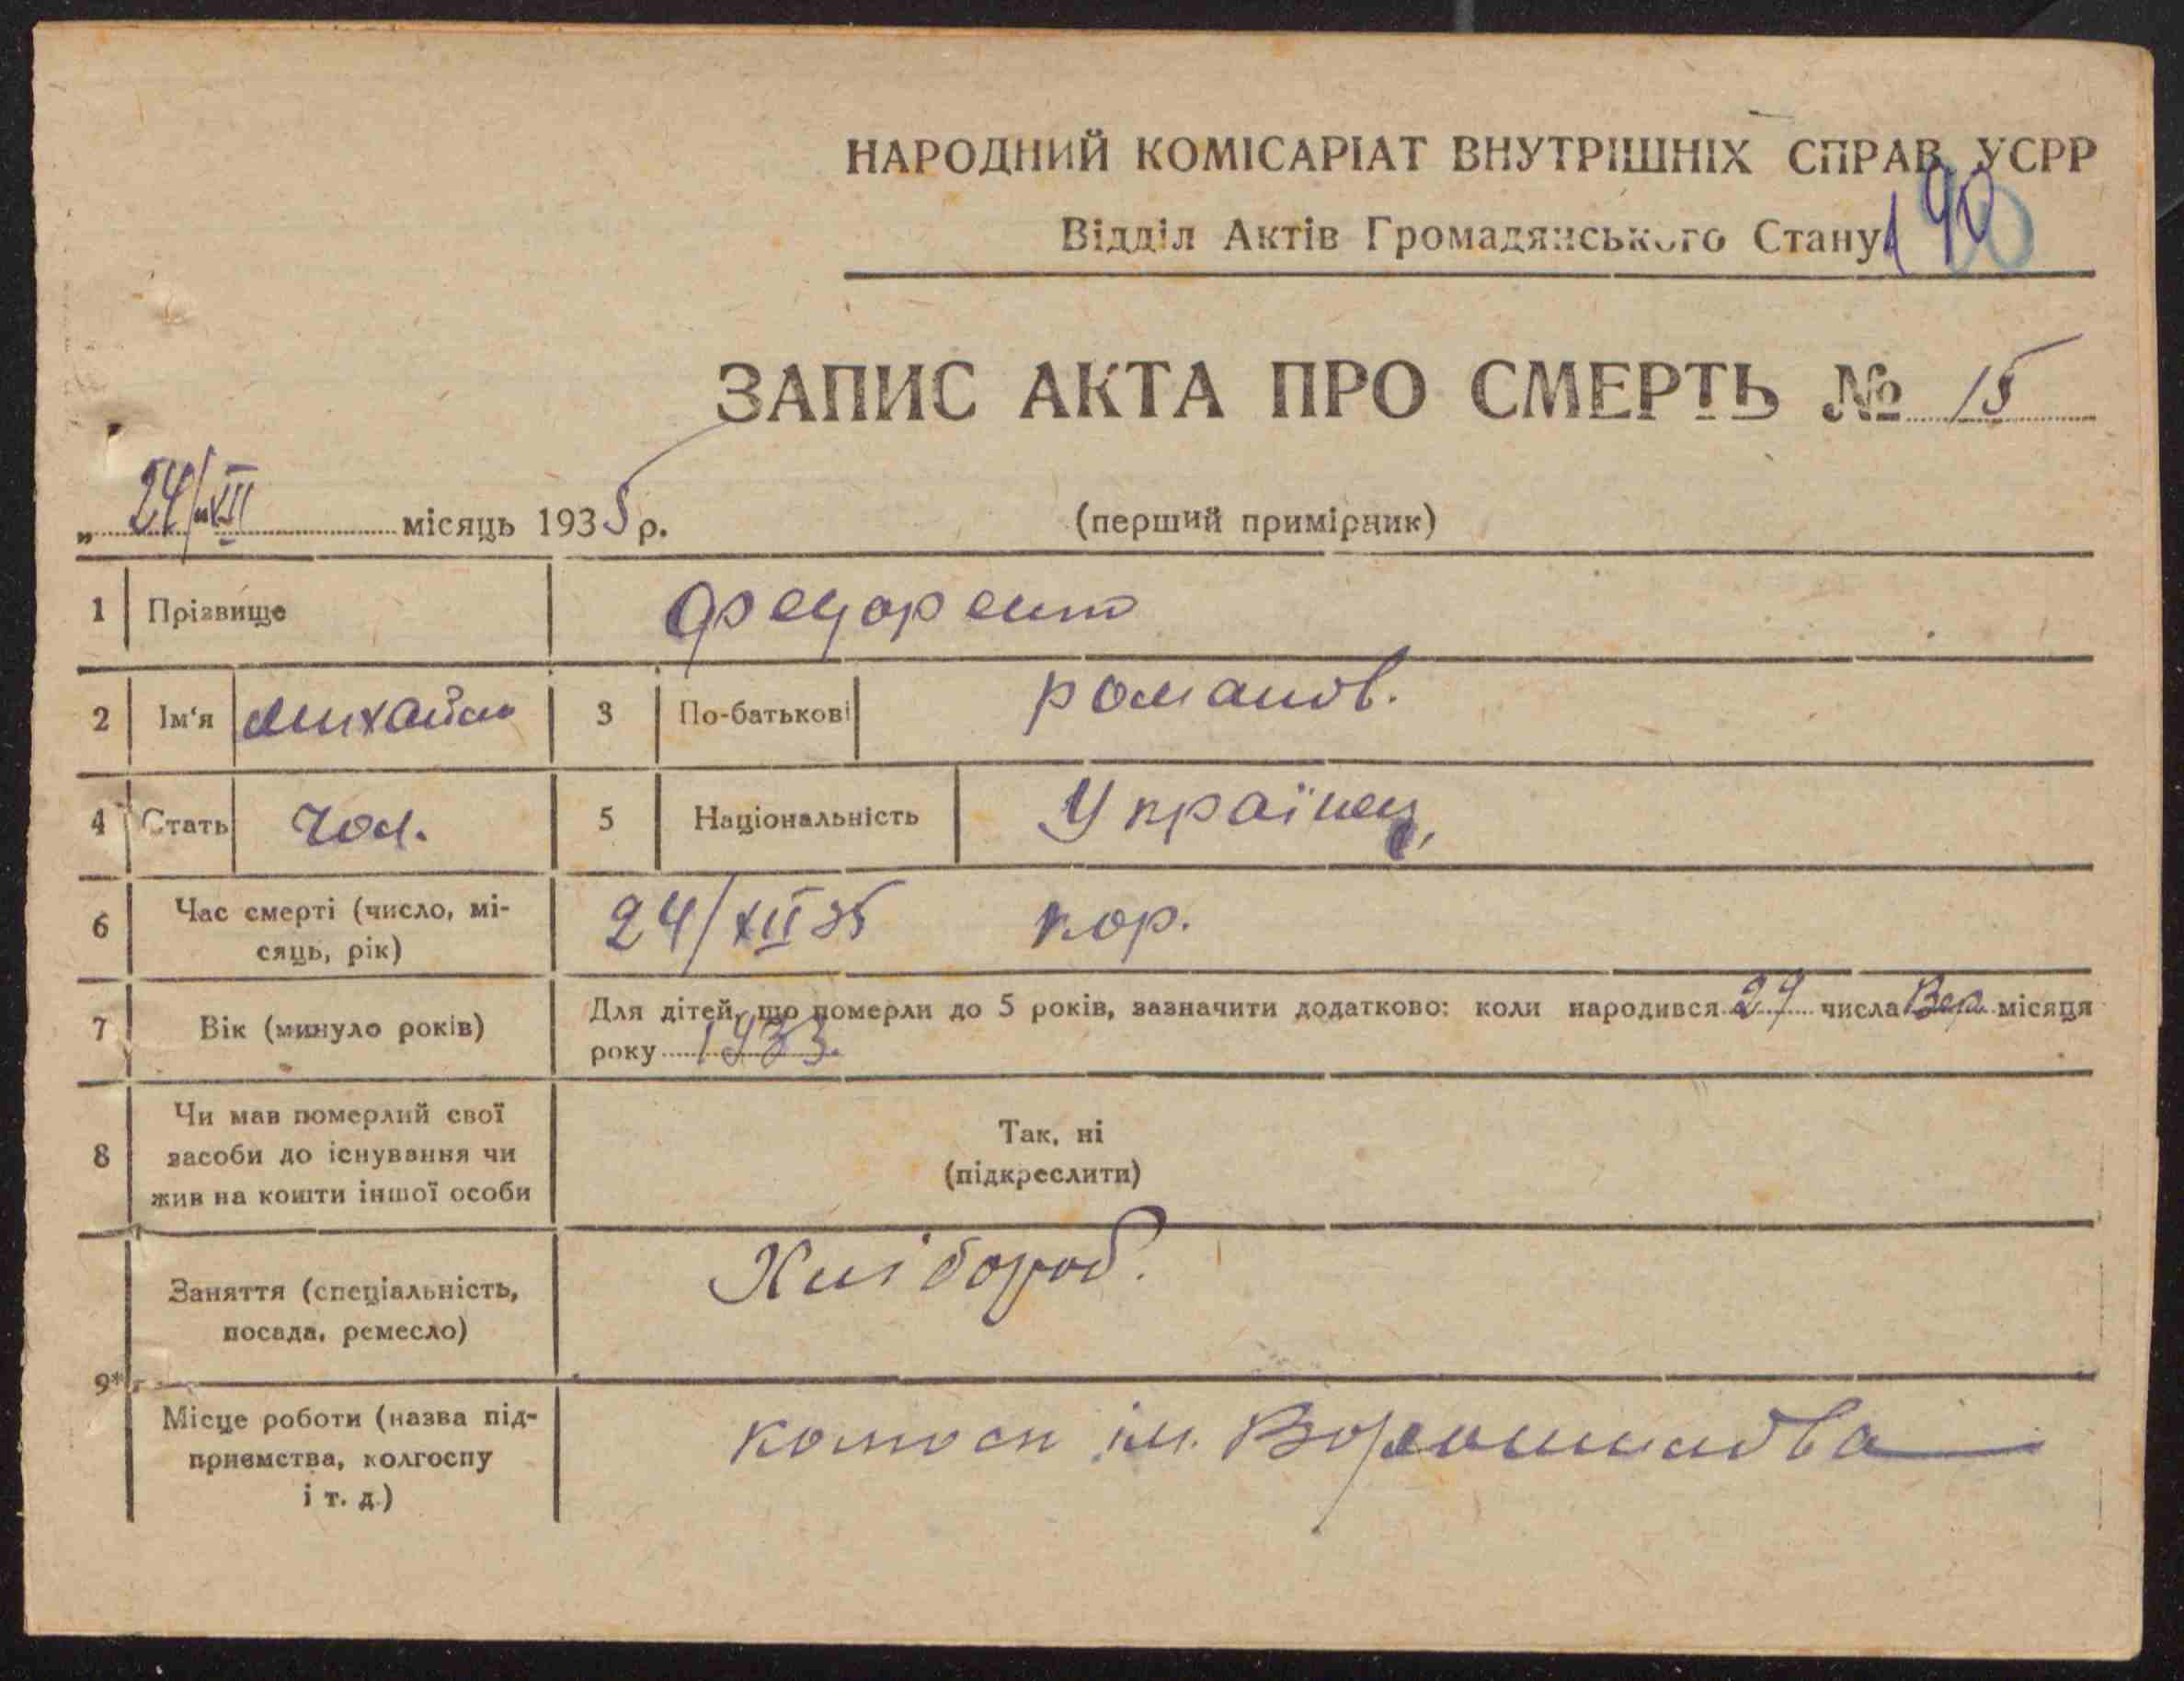 НАРОДНИЙ КОМІСАРІАТ ВНУТРІШНІХ СПРАВ УСРР
Відділ Актів Громадянського Стану 190
ЗАПИС АКТА ПРО СМЕРТЬ № 15
„ 24/XII " місяць 1935 р. (перший примірник)
1 Прізвище Федоренко
2 Ім'я Михайло 3 По-батькові Романов.
4 Стать Чол. 5 Національність Українец,
6 Час смерті (число, мі-
сяць, рік) 24/XII 35 кор.
7 Вік (минуло років) Для дітей, що померли до 5 років, зазначити додатково: коли народився 29 числа Вер. місяця
року 1933.
8 Чи мав померлий свої
засоби до існування чи
жив на кошти іншої особи
Так, ні
(підкреслити)
9*
Заняття (спеціальність,
посада, ремесло) Хлібороб.
Місце роботи (назва під-
приємства, колгоспу
і т. д.) колгосп ім. Ворошилова